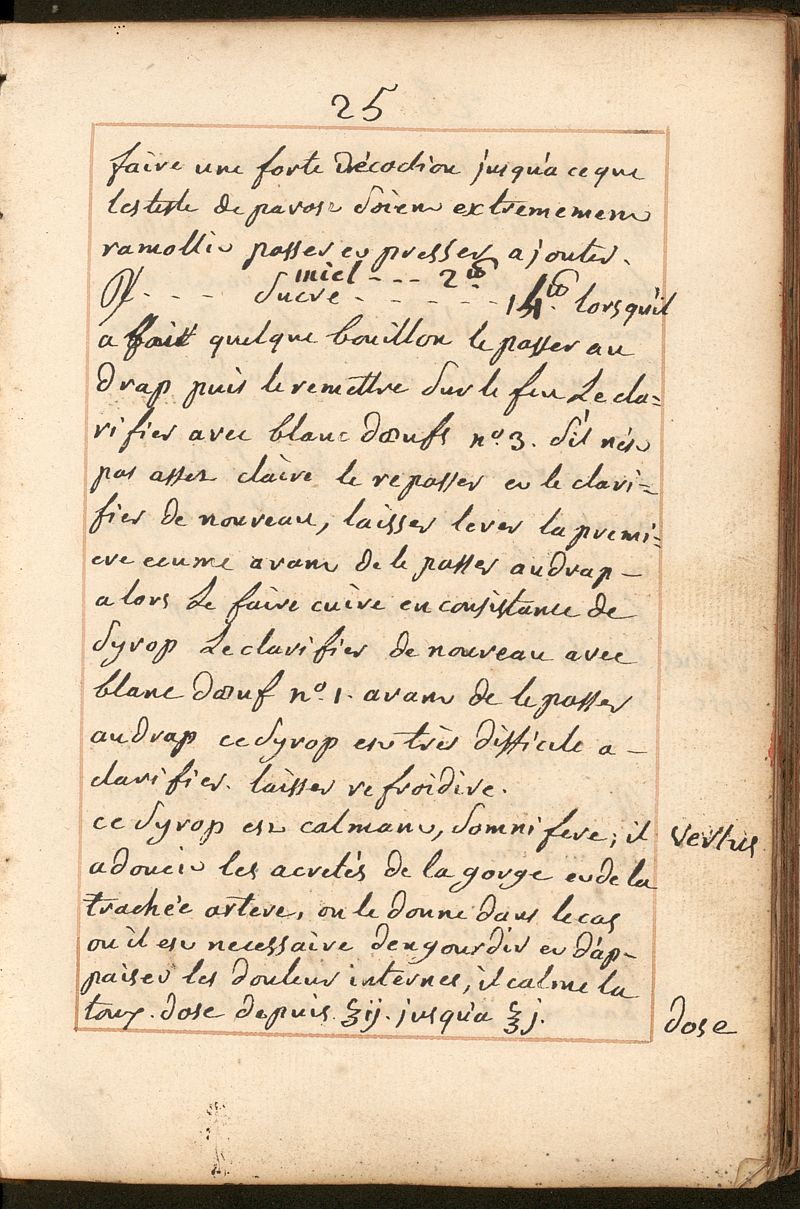 25
faire une forte décoction jusqu'a ce que
les teste de pavost soient extremement
ramollit passer et presser ajouter.
miel - - - 2 lb
℞ - - - Sucre - - - - - - 14 lb. lorsqu'il
a fait quelque bouillon le passer au
drap puis le remettre Sur le feu Le cla=
rifier avec blanc dœufs n.º 3. S'il n'est
pas assez claire le repasser et le clari=
fier de nouveau, laisser lever la premi=
ere ecume avant de le passer au drap -
alors Le faire cuire en consistance de
Syrop Le clarifier de nouveau avec
blanc dœuf n.º 1. avant de le passer
au drap ce Syrop est très difficile a -
clarifier. laisser refroidire.
ce Syrop est calmant, Somnifere, il vertus
adoucit les acretés de la gorge et de la
trachée artere, on le donne dans le cas
ou il est necessaire dengourdir et d'ap-
paiser les douleur internes, il calme la
toux. dose depuis ʒij. jusqu'a ℥j. dose